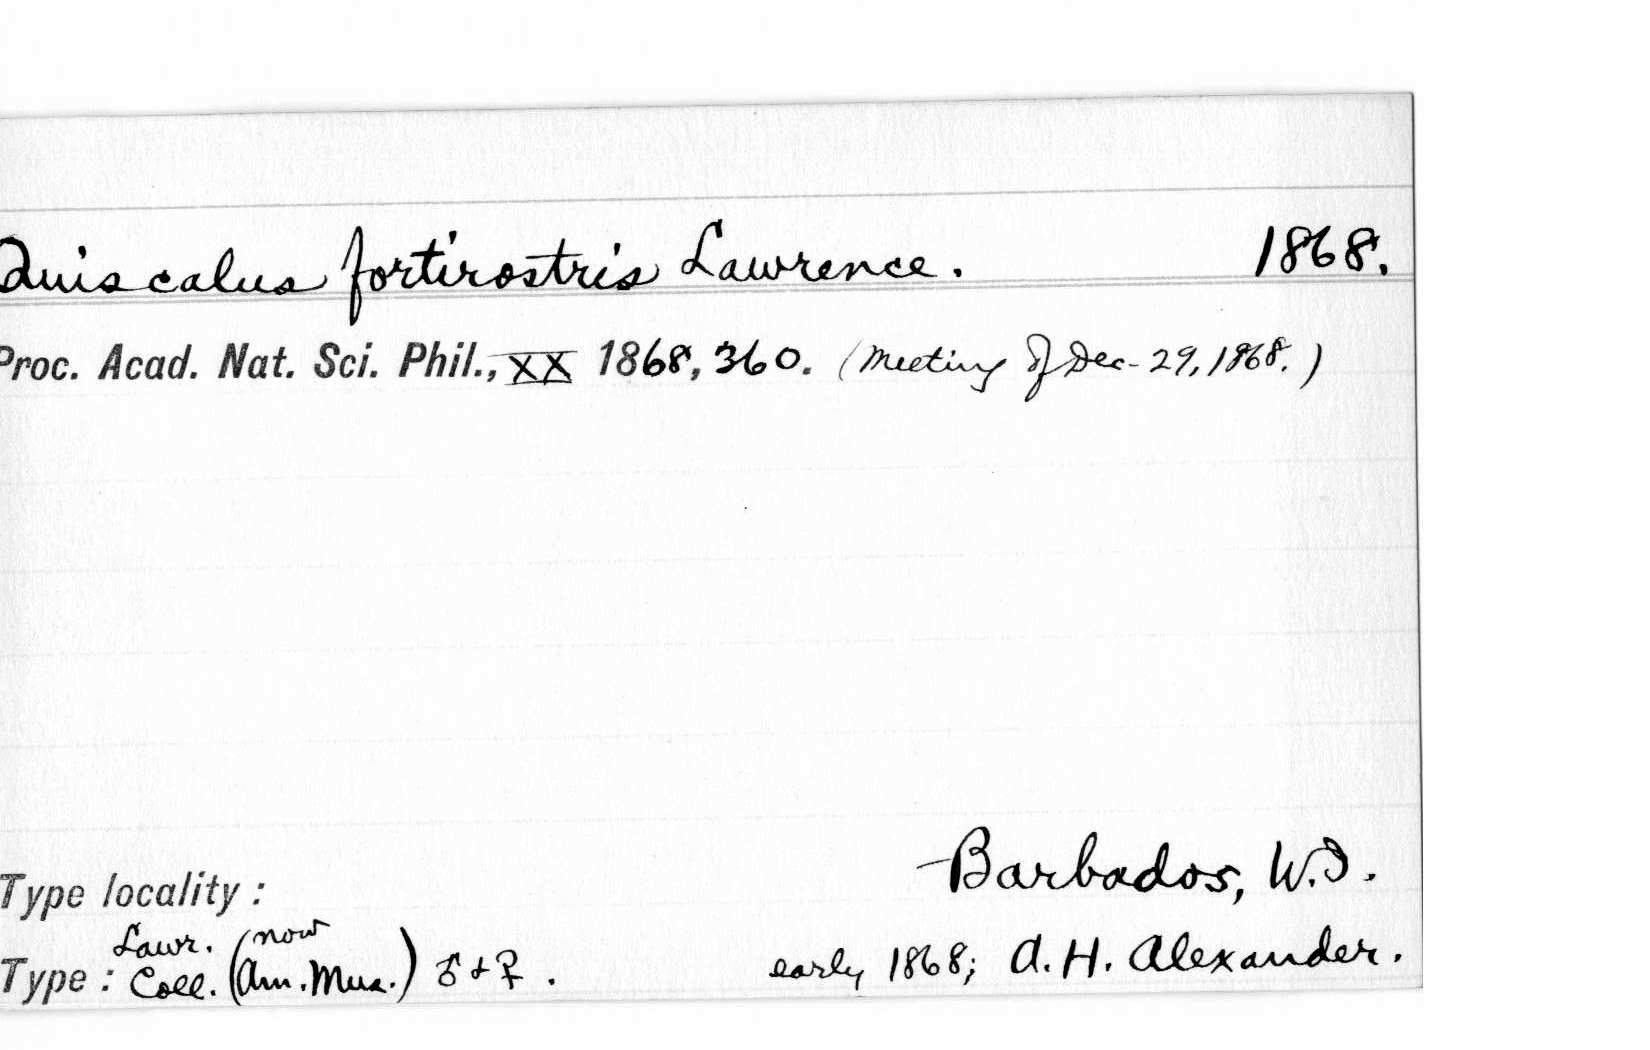 Quiscalus fortirostris Lawrence. 1868.
Proc. Acad. Nat. Sci. Phil., XX 1868, 360. (Meeting of Dec. 29, 1868.)
Type locality : Barbados, W.I.
Type : Lawr. Coll. (now Am. Mus.) ♂ & ♀. early 1868; A. H. Alexander.